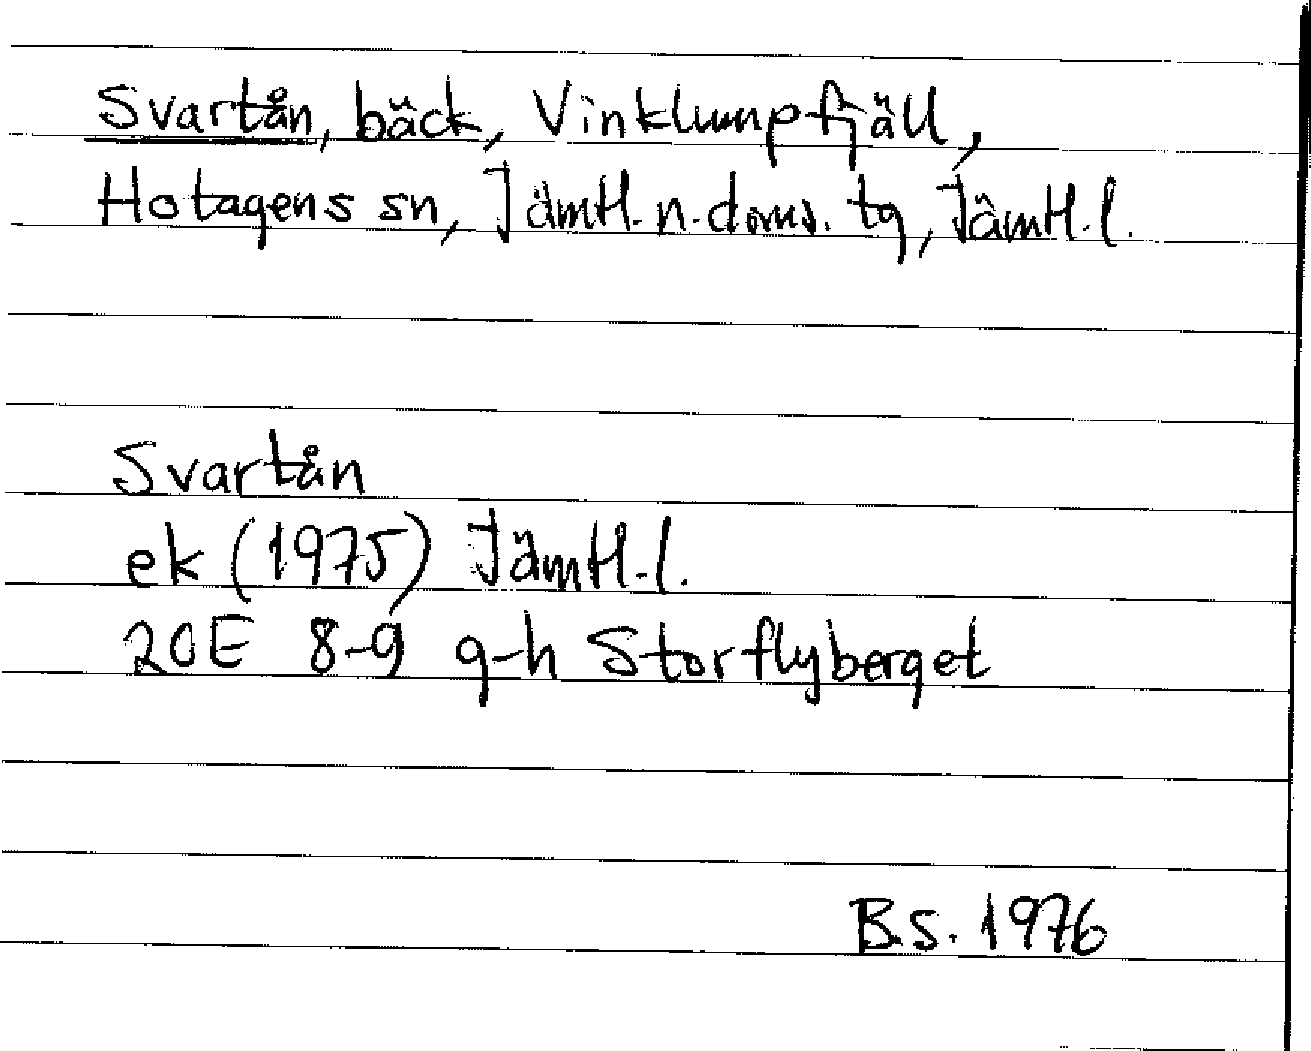 Svartån, bäck, Vinklumpfjäll,
Hotagens sn, Jämtl. n. doms. tg, Jämtl. l.
Svartån
ek (1975) Jämtl. l.
20E 8-9 g-h Storflyberget
B.S. 1976